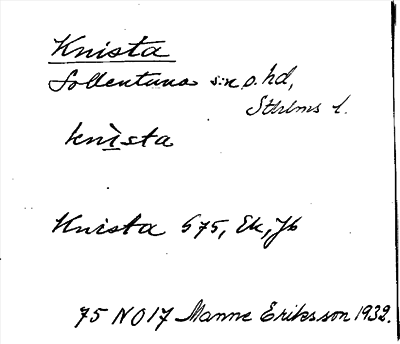 Knista
Sollentuna s:n o. hd,
Sthlms l.
knìsta
Knista 675, Ek, Jb
75 NO17 Manne Eriksson 1932.